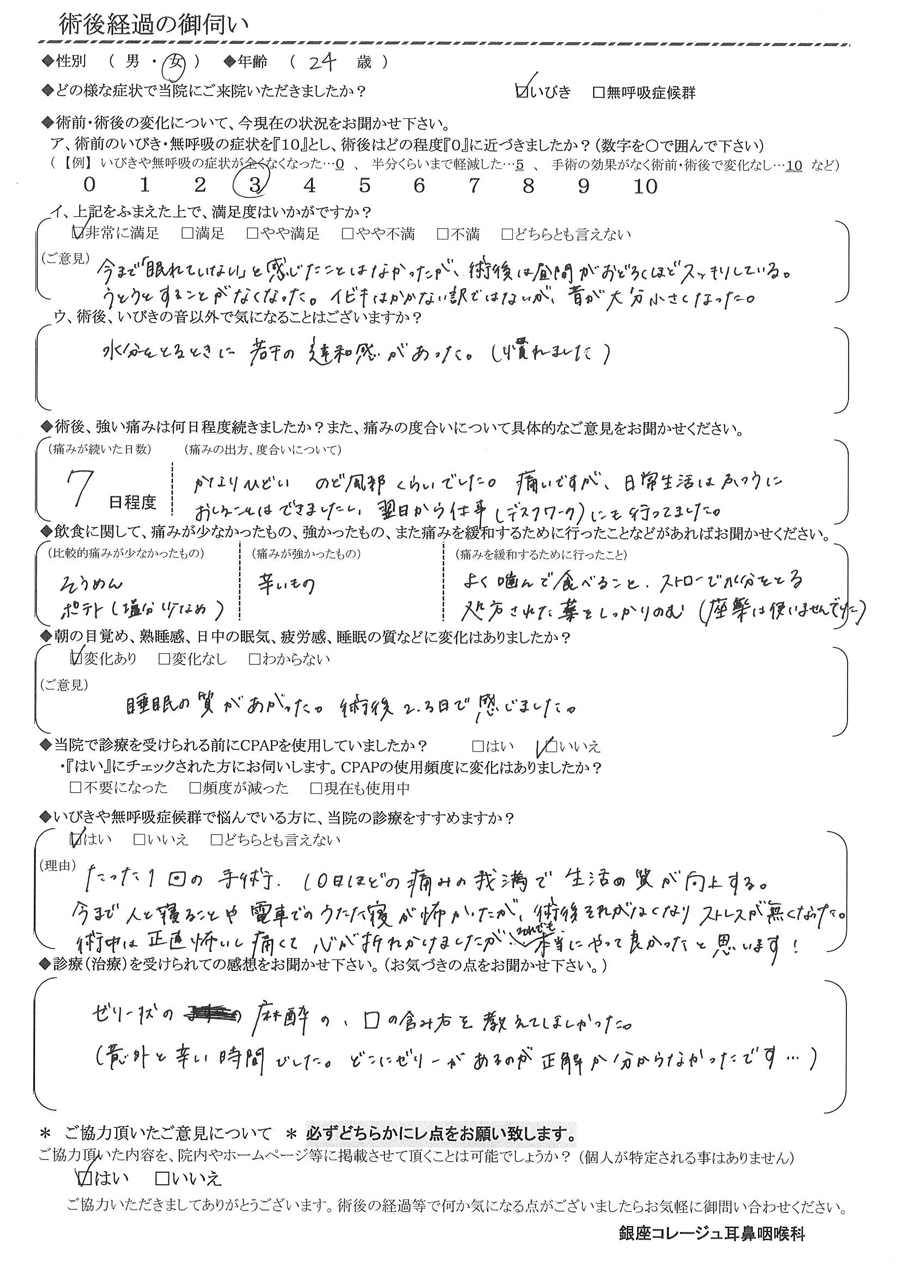 術後経過の御伺い
◆性別 ( 男 ・ 女 ) ◆年齢 ( 24 歳 )
◆どの様な症状で当院にご来院いただきましたか? ☑いびき □無呼吸症候群
◆術前・術後の変化について、今現在の状況をお聞かせ下さい。
ア、術前のいびき・無呼吸の症状を『10』とし、術後はどの程度『0』に近づきましたか?(数字を○で囲んで下さい)
(【例】いびきや無呼吸の症状が全くなくなった…0 、 半分くらいまで軽減した…5 、 手術の効果がなく術前・術後で変化なし…10 など)
0 1 2 3 4 5 6 7 8 9 10
イ、上記をふまえた上で、満足度はいかがですか?
☑非常に満足 □満足 □やや満足 □やや不満 □不満 □どちらとも言えない
(ご意見) 今まで「眠れていない」と感じたことはなかったが、術後は昼間がおどろくほどスッキリしている。
うとうとすることがなくなった。イビキはかかない訳ではないが、音が大分小さくなった。
ウ、術後、いびきの音以外で気になることはございますか?
水分をとるときに 若干の違和感があった。(慣れました)
◆術後、強い痛みは何日程度続きましたか?また、痛みの度合いについて具体的なご意見をお聞かせください。
(痛みが続いた日数) (痛みの出方、度合いについて)
7 日程度 かなりひどい のど風邪くらいでした。痛いですが、日常生活はふつうに
おしごとはできましたし、翌日から仕事(デスクワーク)にも行ってました。
◆飲食に関して、痛みが少なかったもの、強かったもの、また痛みを緩和するために行ったことなどがあればお聞かせください。
(比較的痛みが少なかったもの) (痛みが強かったもの) (痛みを緩和するために行ったこと)
そうめん 辛いもの よく噛んで食べること、ストローで水分をとる
ポテト(塩分少なめ) 処方された薬をしっかりのむ(座薬は使いませんでした)
◆朝の目覚め、熟睡感、日中の眠気、疲労感、睡眠の質などに変化はありましたか?
☑変化あり □変化なし □わからない
(ご意見)
睡眠の質があがった。術後2.3日で感じました。
◆当院で診療を受けられる前にCPAPを使用していましたか? □はい ☑いいえ
・『はい』にチェックされた方にお伺いします。CPAPの使用頻度に変化はありましたか?
□不要になった □頻度が減った □現在も使用中
◆いびきや無呼吸症候群で悩んでいる方に、当院の診療をすすめますか?
☑はい □いいえ □どちらとも言えない
(理由) たった1回の手術、10日ほどの痛みの我満で生活の質が向上する。
今まで人と寝ることや電車でのうたた寝が怖かたが、術後それがなくなりストレスが無くなった。
術中は正直怖いし痛くて心が折れかけましたが、それでも本当にやって良かったと思います!
◆診療(治療)を受けられての感想をお聞かせ下さい。(お気づきの点をお聞かせ下さい。)
ゼリー状の 麻酔の、口の含み方を教えてほしかった。
(意外と辛い時間でした。どこにゼリーがあるのが正解か分からなかったです…)
* ご協力頂いたご意見について * 必ずどちらかにレ点をお願い致します。
ご協力頂いた内容を、院内やホームページ等に掲載させて頂くことは可能でしょうか?(個人が特定される事はありません)
☑はい □いいえ
ご協力いただきましてありがとうございます。術後の経過等で何か気になる点がございましたらお気軽に御問い合わせください。
銀座コレージュ耳鼻咽喉科